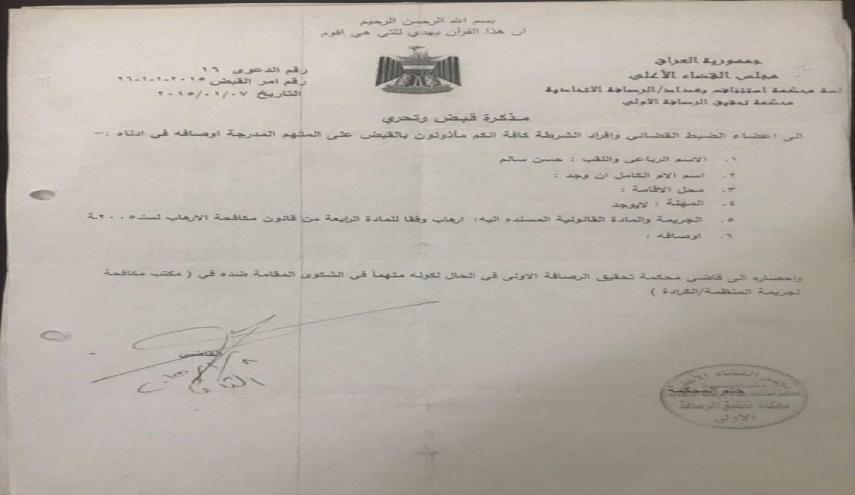 بسم الله الرحمن الرحيم
ان هذا القرآن يهدي للتي هي اقوم
جمهورية العراق
مجلس القضاء الأعلى
اسة محكمة استئناف بغداد/الرصافة الاتحادية
محكمة تحقيق الرصافة الاولى
رقم الدعوى ١٦
رقم امر القبض ٢٠١٥-١-١-٢٦
التاريخ ٢٠١٥/٠١/٠٧
مذكرة قبض وتحري
الى اعضاء الضبط القضائي وافراد الشرطة كافة انكم مأذونون بالقبض على المتهم المدرجة اوصافه في ادناه :-
١. الاسم الرباعي واللقب : حسن سالم
٢. اسم الام الكامل ان وجد :
٣. محل الاقامة :
٤. المهنة : لايوجد
٥. الجريمة والمادة القانونية المسنده اليه: ارهاب وفقا للمادة الرابعة من قانون مكافحة الارهاب لسنة ٢٠٠٥
٦. اوصافه :
واحضاره الى قاضي محكمة تحقيق الرصافة الاولى في الحال لكونه متهماً في الشكوى المقامة ضده في ( مكتب مكافحة
لجريمة المنظمة/الكرادة )
القاضي
ختم المحكمة
محكمة تحقيق الرصافة
الاولى